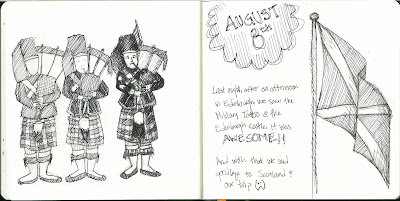 AUGUST
8th
Last night, after an afternoon
in Edinburgh we saw the
Military Tattoo @ the
Edinburgh Castle. It was
AWESOME!!
And with that we said
goodbye to Scotland +
our trip